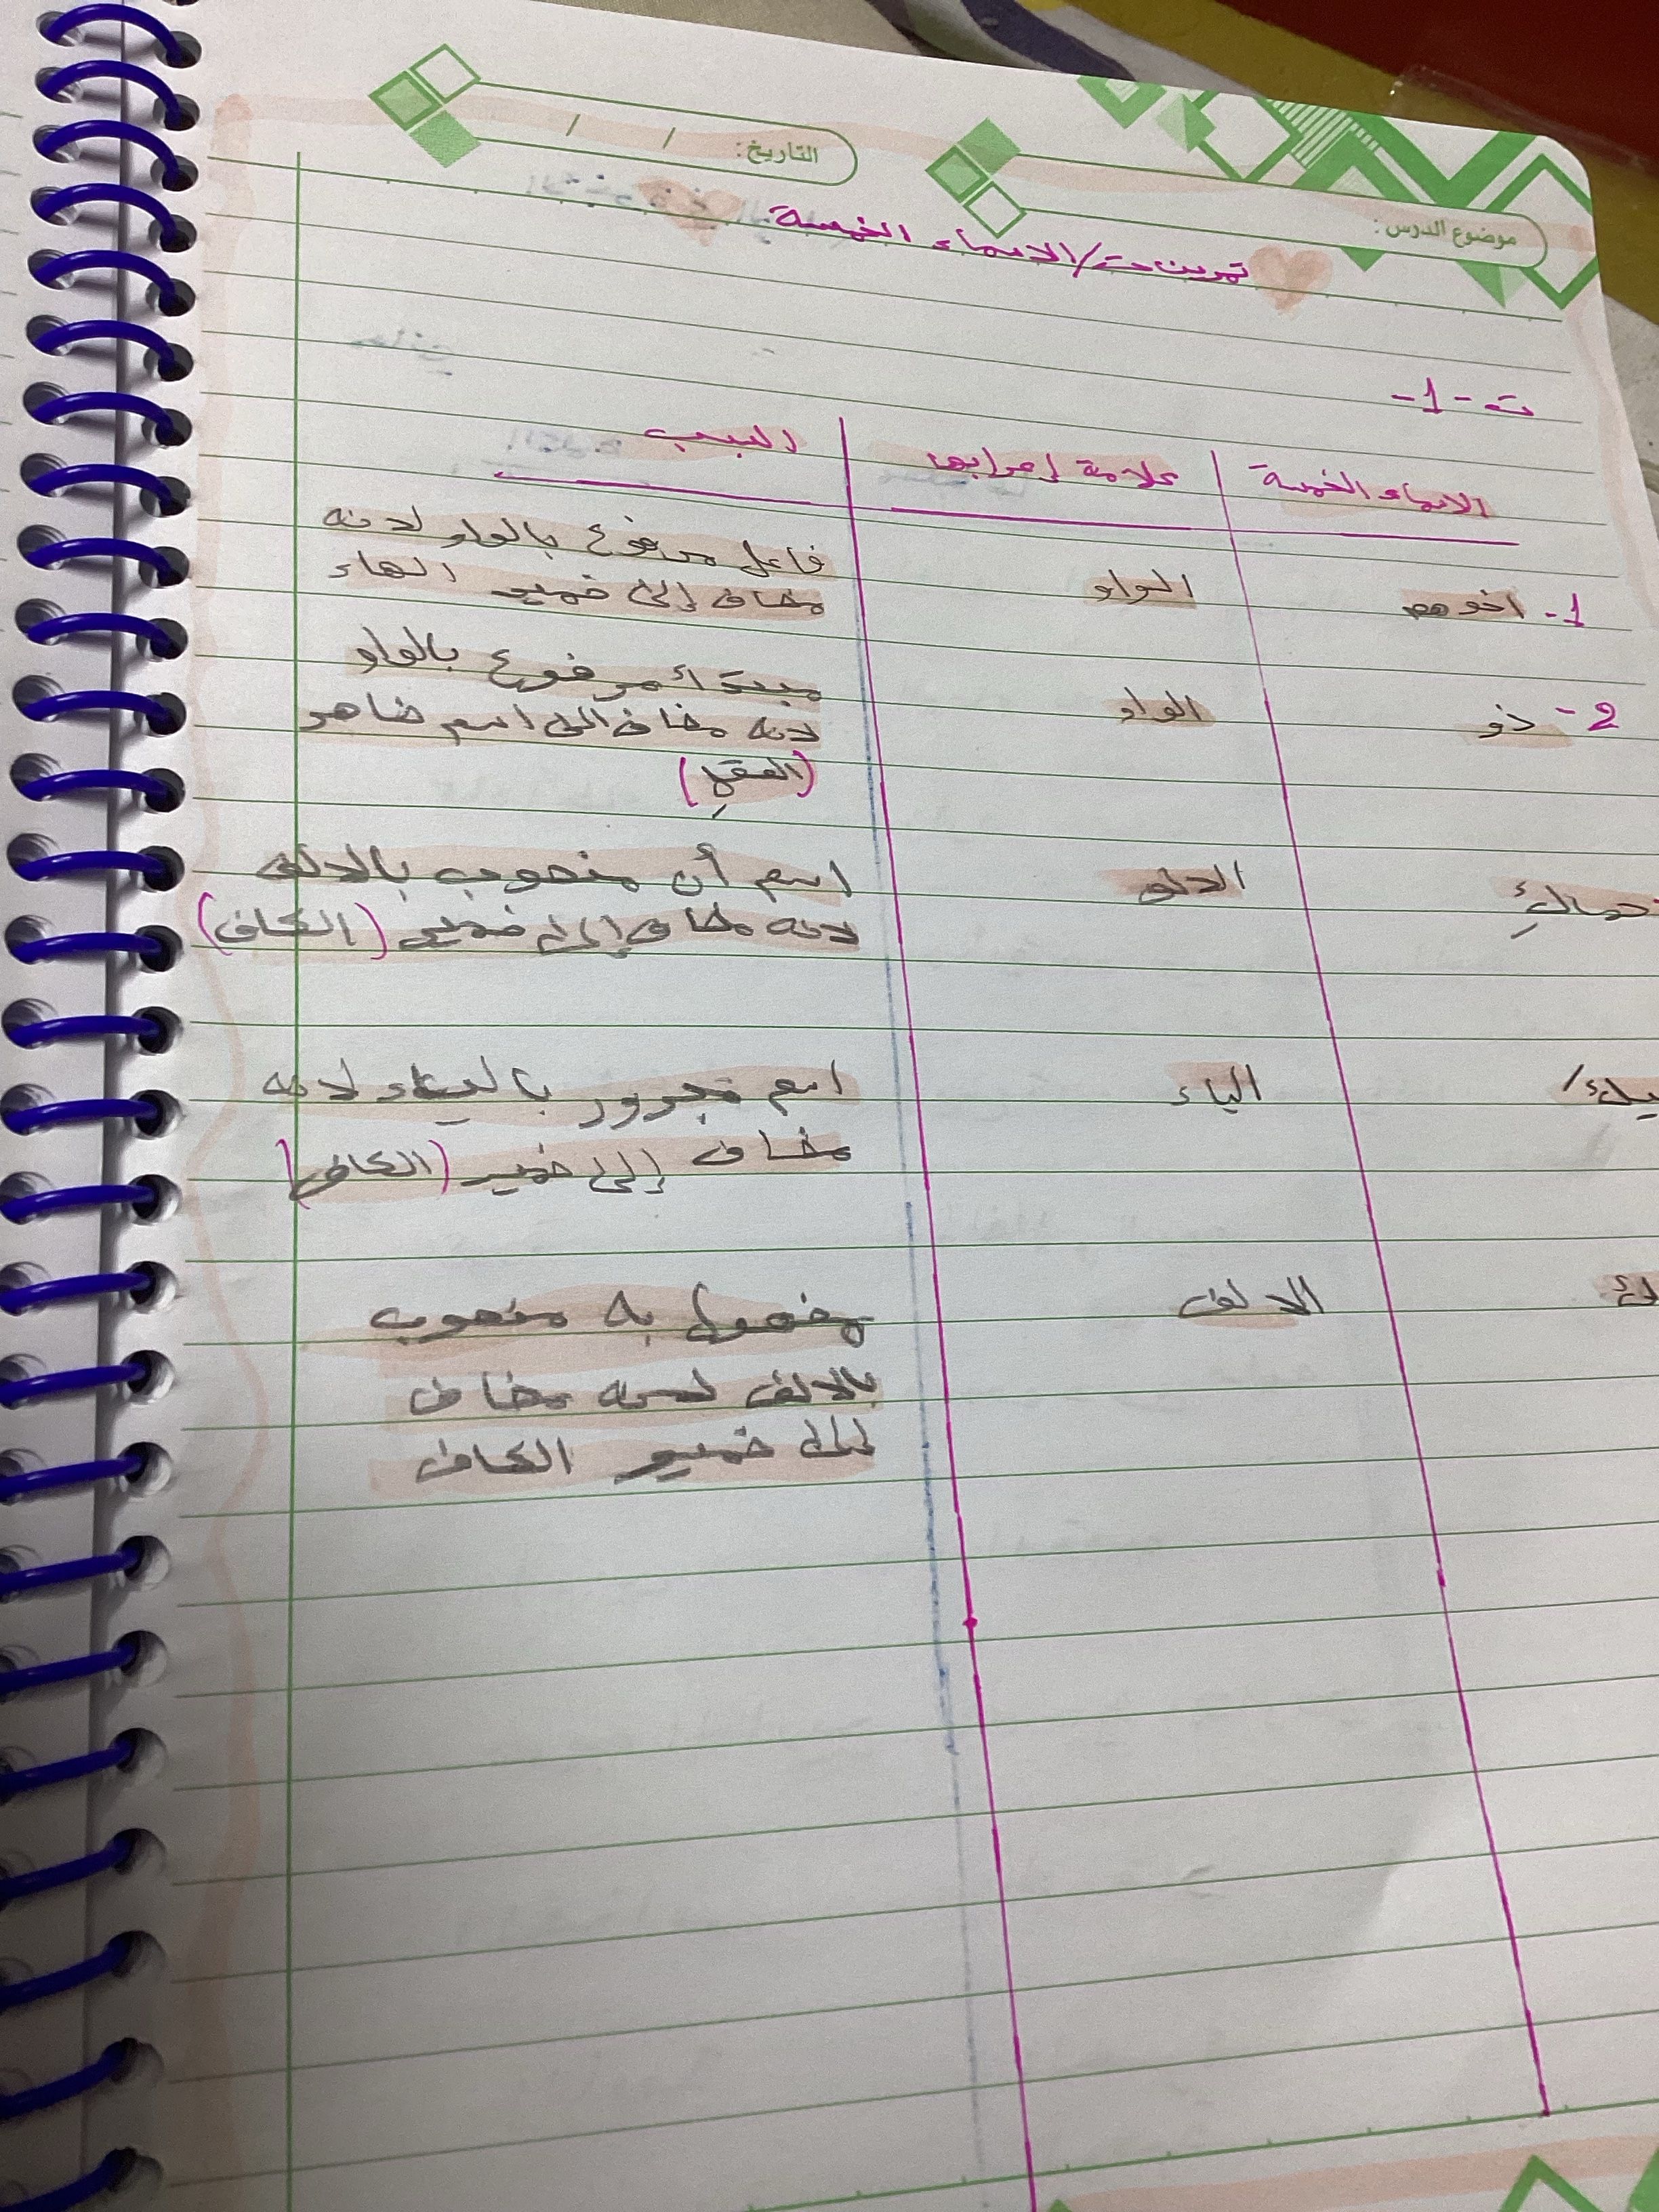 التاريخ: / /
موضوع الدرس:
تمرينات/الاسماء الخمسة
ت -1-
الاسماء الخمسة علامة إعرابها السبب
1- اخوهم الواو فاعل مرفوع بالواو لانه
مضاف إلى ضمير الهاء
2- ذو الواو مبتدأ مرفوع بالواو
لانه مضاف الى اسم ضاهر
(العقلِ)
حماكِ الالف اسم أن منصوب بالالف
لانه مضاف إلى ضمير (الكاف)
يك/ الياء اسم مجرور بالياء لانه
مضاف إلى ضمير (الكاف)
الالف مفعول به منصوب
بالالف لانه مضاف
إلى ضمير الكاف